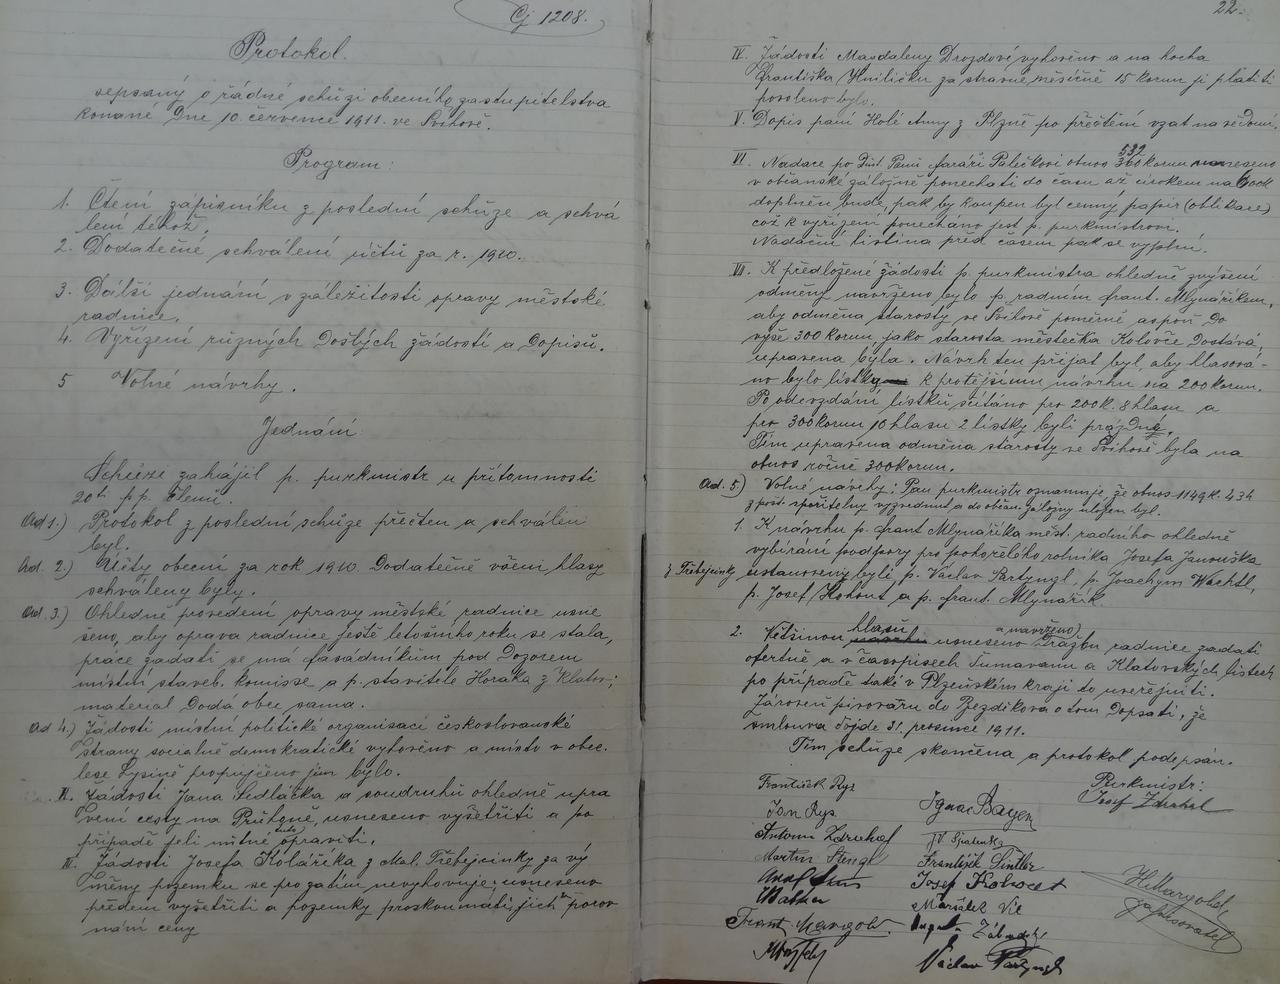 Čj 1208.
Protokol.
sepsaný o řádné schůzi obecního zastupitelstva
konané Dne 10. července 1911. ve Švihově.
Program:
1. Čtení zápisníku z poslední schůze a schvá
lení téhož.
2. Dodatečné schválení účtů za r. 1910.
3. Dálší jednání v záležitosti opravy městské
radnice.
4. Vyřízení různých Došlých žádostí a Dopisů.
5 Volné návrhy.
Jednání:
Schůze zahájil p. purkmistr u přítomnosti
20ti pp. členů.
Ad 1.) Protokol z poslední schůze přečten a schválen
byl.
Ad. 2.) Účty obecní za rok 1910. Dodatečně všemi hlasy
schváleny byly.
Ad. 3.) Ohledně provedení opravy městské radnice usne
šeno, aby oprava radnice ještě letošního roku se stala,
práce zadati se má fasádníkům pod Dozorem
místní staveb. komisse a p. stavitele Horáka z Klatov;
material Dodá obec sama.
Ad 4.) Žádosti místní politické organisací českoslovanské
strany sociálně demokratické vyhověno a místo v obec.
lese Lysině propujčeno jim bylo.
II. Žádosti Jana Sedláčka a soudruhů ohledně upra
vení cesty na Průhoně, usneseno vyšetřiti a po
případě jeli nutné tuto opraviti.
III. Žádosti Josefa Kolaříka z Mal. Třebejcinky za vý
měny pozemku se prozatím nevyhovuje; usneseno
předem vyšetřiti a pozemky proskoumati jich porov
nání ceny
22.
IV. Žádosti Magdaleny Drozdové vyhověno a na hocha
Františka Hniličku za stravné měsíčně 15 korun jí platiti
povoleno bylo.
V. Dopis paní Holé Anny z Plzně po přečtení vzat na vědomí.
532
VI. Nadace po Dist. Panu faráři Paličkovi obnos 360 korun usneseno
v občanské záložně ponechati do času až úrokem na 600K
doplněn bude, pak by koupen byl cenný papír (oblikace)
což k vyřízení ponecháno jest p. purkmistrovi.
Nadační listina před časem pak se vyplní.
VII. K předložené žádosti p. purkmistra ohledně zvýšení
odměny navrženo bylo p. radním Frant. Mlynaříkem,
aby odměna starosty ve Švihově poměrně aspoň Do
výše 300 korun jako starosta městečka Koloveč Dostává,
upravena byla. Návrh ten přijat byl, aby hlasová-
no bylo lístky k protějšímu návrhu na 200 korun.
Po odevzdání lístků sčítáno pro 200 K. 8 hlasů a
pro 300 korun 10 hlasů 2 lístky byli prázdné.
Tím upravena odměna starosty ve Švihově byla na
obnos ročně 300 korun.
Ad. 5.) Volné návrhy: Pan purkmistr oznamuje, že obnos 1149 K. 43 h
z pošt. spořitelny vyzvednut a do občan. záložny uložen byl.
1. K návrhu p. Frant Mlynaříka měst. radního ohledně
vybírání podpory pro pohořelého rolníka Josefa Janouška
z Třebejcinky ustanoveny byli, p. Václav Partyngl. p. Joachym Wachtl,
p. Josef Kohout a p. Frant. Mlynařík.
hlasů a navrženo)
2. Většinou usneseno Dražbu radnice zadati
ofertně a v časopisech Šumavanu a Klatovských listech
po případě také v Plzeňském kraji to uveřejniti.
Zároveň pivováru do Bezděkova o tom Dopsati, že
smlouva dojde 31. prosince 1911.
Tím schůze skončena a protokol podepsán.
Purkmistr:
František Rys
Josef Zdrahal
Jan Rys.
Ignac Bayer
Antonín Zdrahal
Martin Stengl
František Sintler
Josef Kohout
Maršálek Vil
Frant. Mangold
Václav Partyngl
zapisovatel